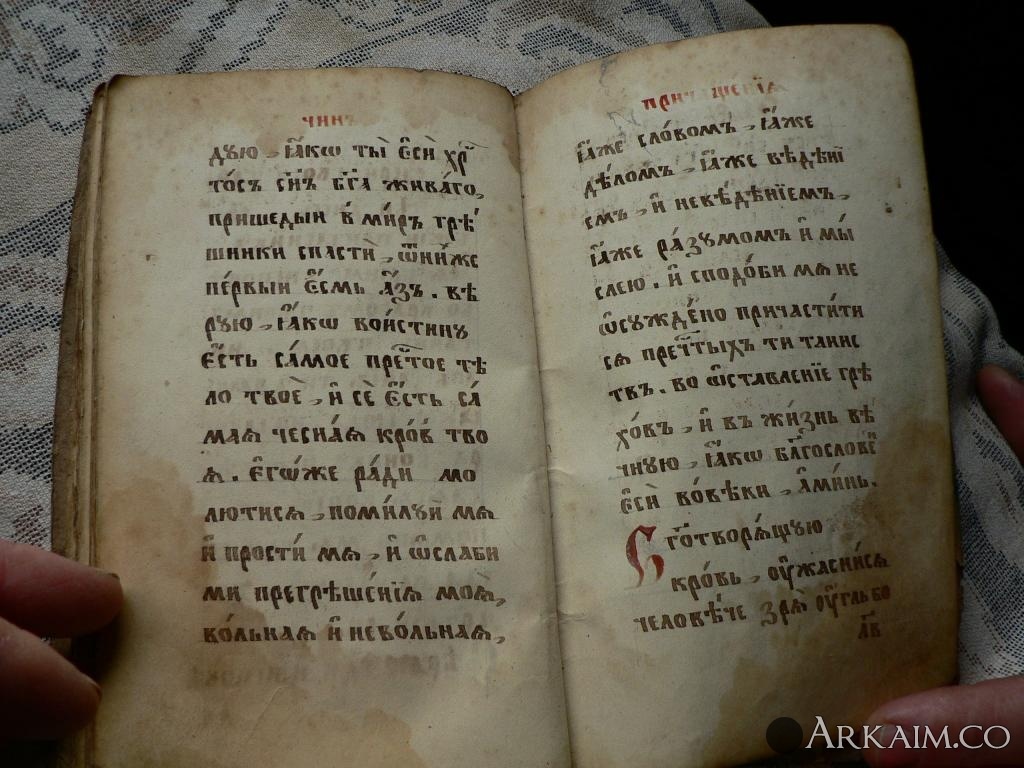 чинъ
дꙋю, ꙗ҆́кѡ ты̀ є҆сѝ хрⷭ҇
тосъ сн҃ъ бг҃а жива́го,
пришедыи в̾ ми́ръ грѣ́
шники спастѝ, ѿни́хже
пе́рвыи є҆́смь а҆́зъ. вѣ
рꙋю, ꙗ҆́кѡ вои́стинꙋ
є҆́сть са́мое преⷱ҇тое тѣ́
ло твоѐ, и҆ сѐ є҆́сть са́
маѧ чесна́ѧ кро́в̾ тво
ѧ̀. є҆гѡ́же ра́ди мо
лю́тисѧ, поми́лꙋй мѧ
и҆ прости́ мѧ, и҆ ѡ҆слаби
ми прегрѣше́нїѧ моѧ̀,
во́льнаѧ и҆ нево́льнаѧ,
причащенїѧ
ꙗ҆́же сло́вомъ, ꙗ҆́же
дѣ́ломъ, ꙗ҆́же вѣ́дѣнї
емъ, и҆ невѣ́дѣнїемъ,
ꙗ҆́же ра́зꙋмомъ и҆ мы́
слею. и҆ сподо́би мѧ не
ѡ҆сꙋжде́но причасти́ти
сѧ преⷱ҇тыхъ ти таинс
твъ. во ѡ҆ставле́нїе грѣ
хо́въ, и҆ въ жи́знь вѣ́
чнꙋю, ꙗ҆́кѡ бл҃гослове́н
є҆сѝ во́вѣки, а҆ми́нь.
Бг҃отворѧ́щꙋю
кро́вь, ѹ҆жасни́сѧ
человѣ́че зрѧ̀ ѹ҆́гль бо
л҃в
Arkaim.co